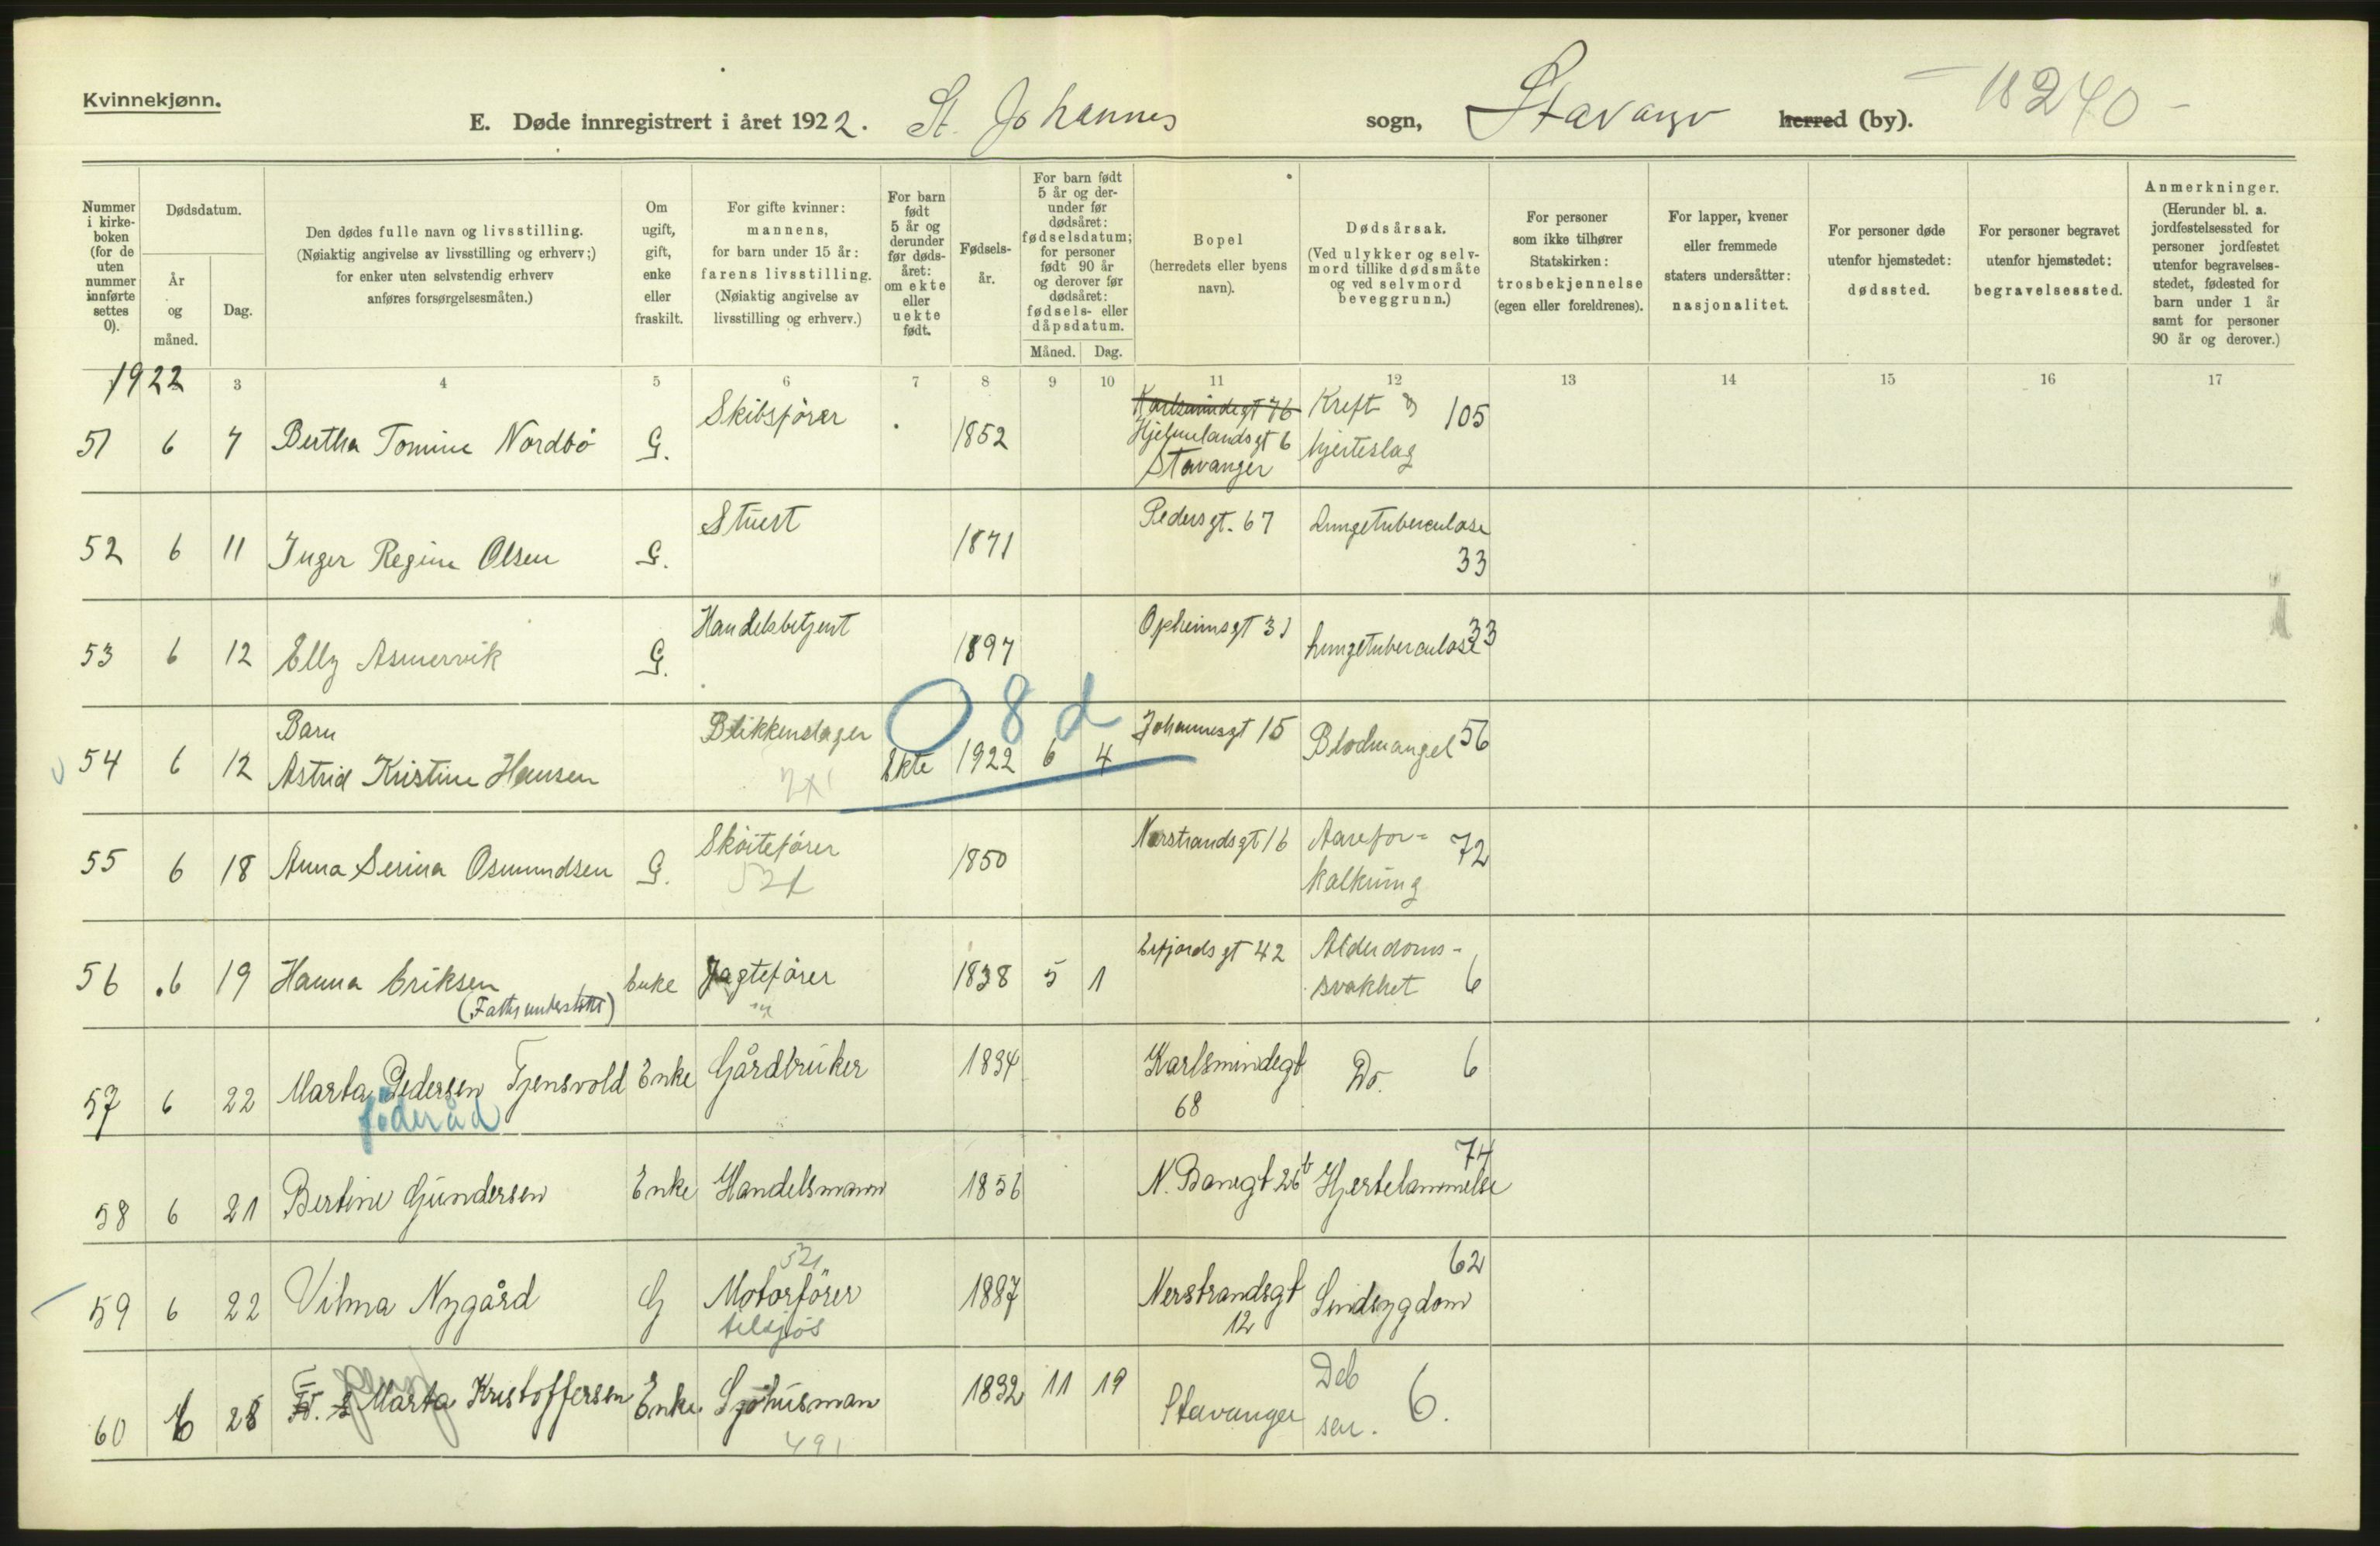 Kvinnekjønn.
E. Døde innregistrert i året 1922. St. Johannes sogn, Stavanger herred (by). 18240 -
Nummer i kirke-boken (for de uten nummer innførte settes 0).
Dødsdatum.
År og måned.
Dag.
Den dødes fulle navn og livsstilling.
(Nøiaktig angivelse av livsstilling og erhverv;)
for enker uten selvstendig erhverv
anføres forsørgelsesmåten.)
Om ugift, gift, enke eller fraskilt.
For gifte kvinner:
mannens,
for barn under 15 år:
farens livsstilling.
(Nøiaktig angivelse av
livsstilling og erhverv.)
For barn født 5 år og derunder før døds-året: om ekte eller uekte født.
Fødsels-år.
For barn født 5 år og der-under før dødsåret: fødselsdatum; for personer født 90 år og derover før dødsåret: fødsels- eller dåpsdatum.
Måned. Dag.
Bopel
(herredets eller byens
navn).
Dødsårsak.
(Ved ulykker og selv-
mord tillike dødsmåte
og ved selvmord
beveggrunn.)
For personer
som ikke tilhører
Statskirken:
trosbekjennelse
(egen eller foreldrenes).
For lapper, kvener
eller fremmede
staters undersåtter:
nasjonalitet.
For personer døde
utenfor hjemstedet:
dødssted.
For personer begravet
utenfor hjemstedet:
begravelsessted.
Anmerkninger.
(Herunder bl. a.
jordfestelsessted for
personer jordfestet
utenfor begravelses-
stedet, fødested for
barn under 1 år
samt for personer
90 år og derover.)
1922 3 4 5 6 7 8 9 10 11 12 13 14 15 16 17
51 6 7 Bertha Tomine Nordbö G. Skibsfører 1852 Karlsmindegt 76 Hjelmelandsgt 6 Stavanger Kreft & hjerteslag 105
52 6 11 Inger Regine Olsen G. Stuert 1871 Pedersgt. 67 Lungetuberculose 33
53 6 12 Elly Asmervik G. Handelsbetjent 1897 Opheimsgt 31 Lungetuberculose 33
08d
54 6 12 Barn Astrid Kristine Hansen Blikkenslager Ekte 1922 6 4 Johannesgt 15 Blodmangel 56
55 6 18 Anna Serina Osmundsen G. Skøitefører 521 1850 Nerstrandsgt 16 Aarefor= kalkning 72
56 6 19 Hanna Eriksen Enke Jagtefører 1838 5 1 Erfjords gt 42 Alderdoms- svakhet 6
57 6 22 Marta Pedersen Tjensvold föderåd Enke Gårdbruker 1834 Karlsmindegt 68 Do. 6
58 6 21 Bertine Gundersen Enke Handelsmann 1856 N. Banegt 26b Hjertelammelse 74
59 6 22 Vilma Nygård G 521 Motorförer tilsjøs 1887 Nerstrandsgt 12 Sindsygdom 62
60 6 28 Marta Kristoffersen Enke Sjøhusman 491 1832 11 19 Stavanger Deb sen. 6.